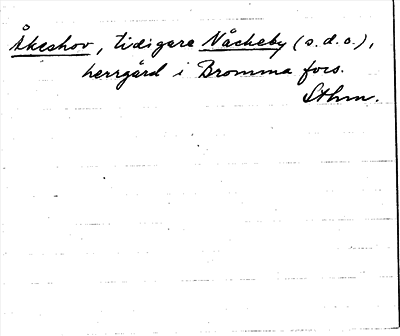 Åkeshov, tidigare Nåckeby (s.d.o.),
herrgård i Bromma förs.
Sthm.